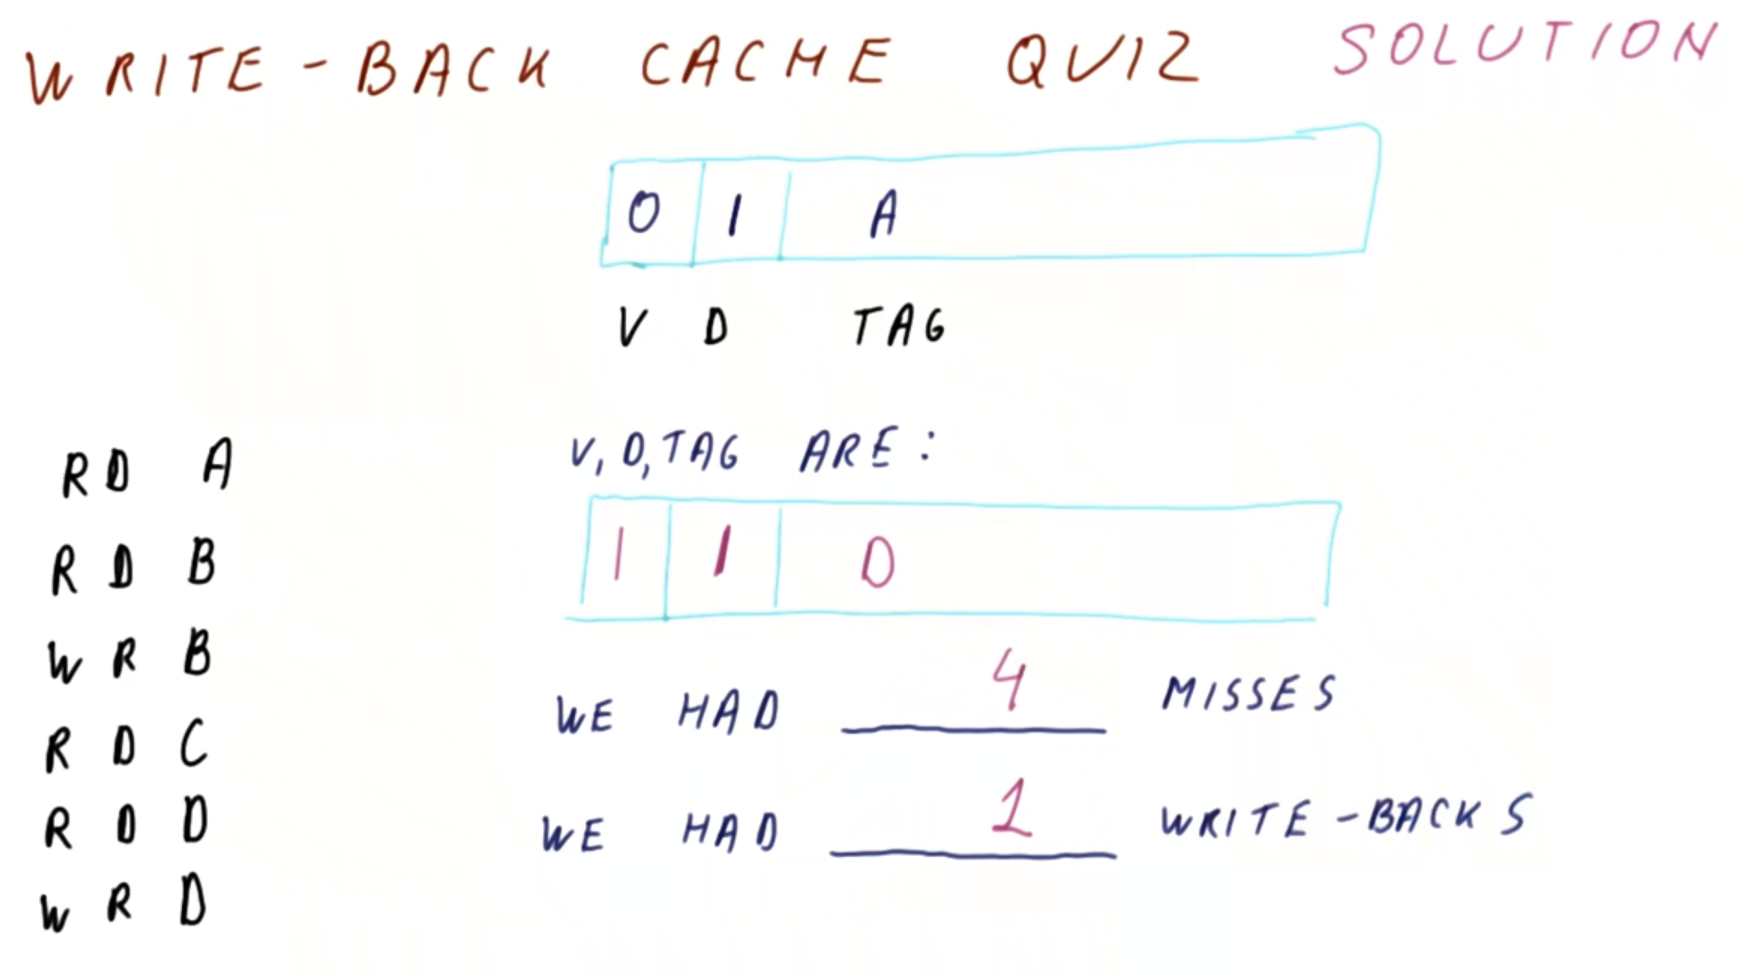 WRITE-BACK CACHE QUIZ SOLUTION
0 1 A
V D TAG
RD A
RD B
WR B
RD C
RD D
WR D
V, D, TAG ARE:
1 1 D
WE HAD 4 MISSES
WE HAD 1 WRITE-BACKS